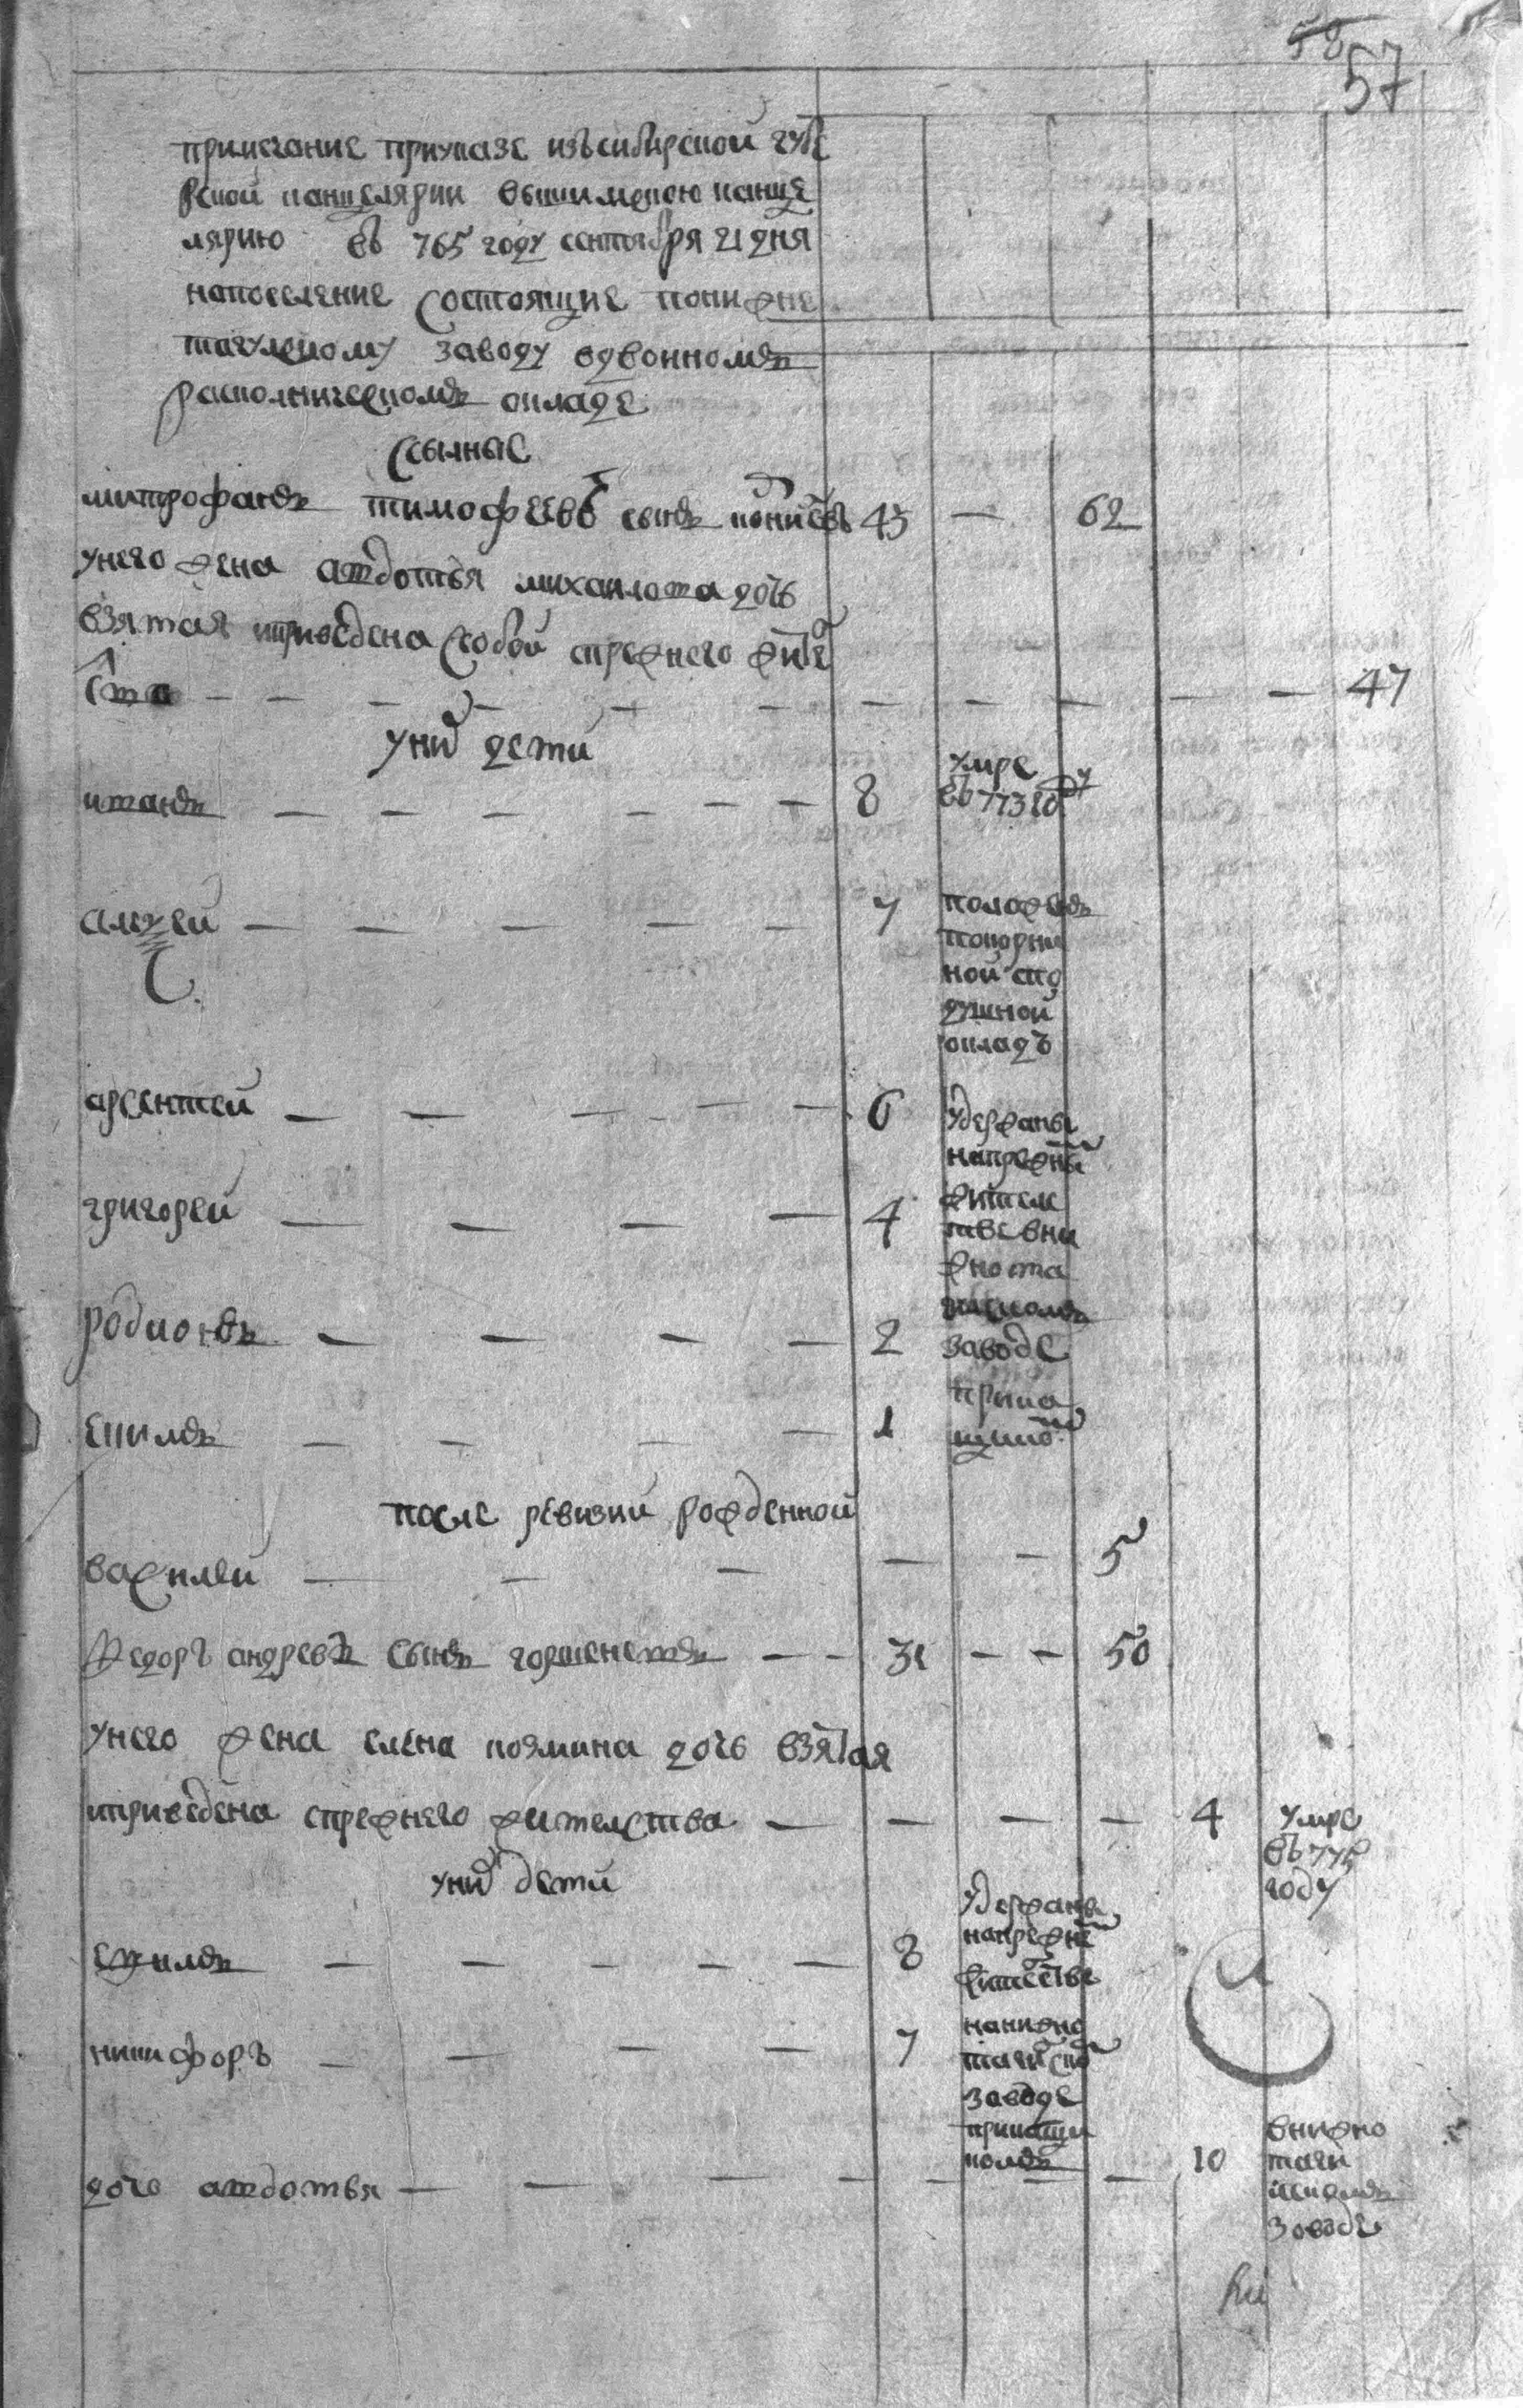 58
57
присланные приуказе изъ сибирской губе
рской канцелярии вышимскою канце
лярию въ 765 году сентября 21 дня
напоселение состоящие по нижне
тагилскому заводу вдвоинномъ
раскольническомъ окладе
ссылные
митрофанъ тимофеевъ сынъ 43 — 62
унего жена авдотья михайлова дочь
взятая и приведена собой спрежнего жите
ства — — — — — — — — — — — 47
уних дети
иванъ — — — — — — 8 умре въ 773 году
алексей — — — — — 7 положенъ
вподушной
окладъ
арсентей — — — — — — 6 удержаны
на прежнем
григорей — — — — 4 жителстве в ни
жнота
родионъ — — — — 2 гилскомъ
заводе
екимъ — — — — 1 прика
щиком
после ревизии рожденной
василей — — — — — 5
федоръ андреевъ сынъ горшеневъ — — 31 — — 50
унего жена елена козмина дочь взятая
и приведена спрежнего жителства — — — — 4 умре
въ 775
году
уних дети
ефимъ — — — — — 8 удержаны
на прежнем
жителстве
никифоръ — — — — 7 на нижно
тагилском
заводе
прикащи
комъ
дочь авдотья — — — — — — — 10 внижно
таги
лскомъ
заводе